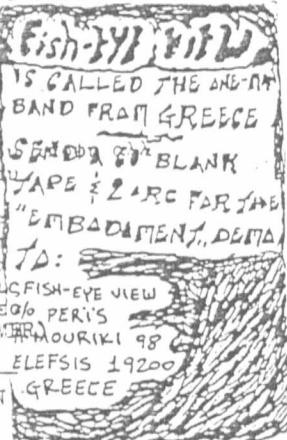 Fish-EYE VIEW
IS CALLED THE ONE-MAN
BAND FROM GREECE
SEND A BLANK
TAPE & 2 IRC FOR THE
"EMBODIMENT" DEMO
TO:
FISH-EYE VIEW
C/O PERI'S
ARMOURIKI 98
ELEFSIS 19200
GREECE